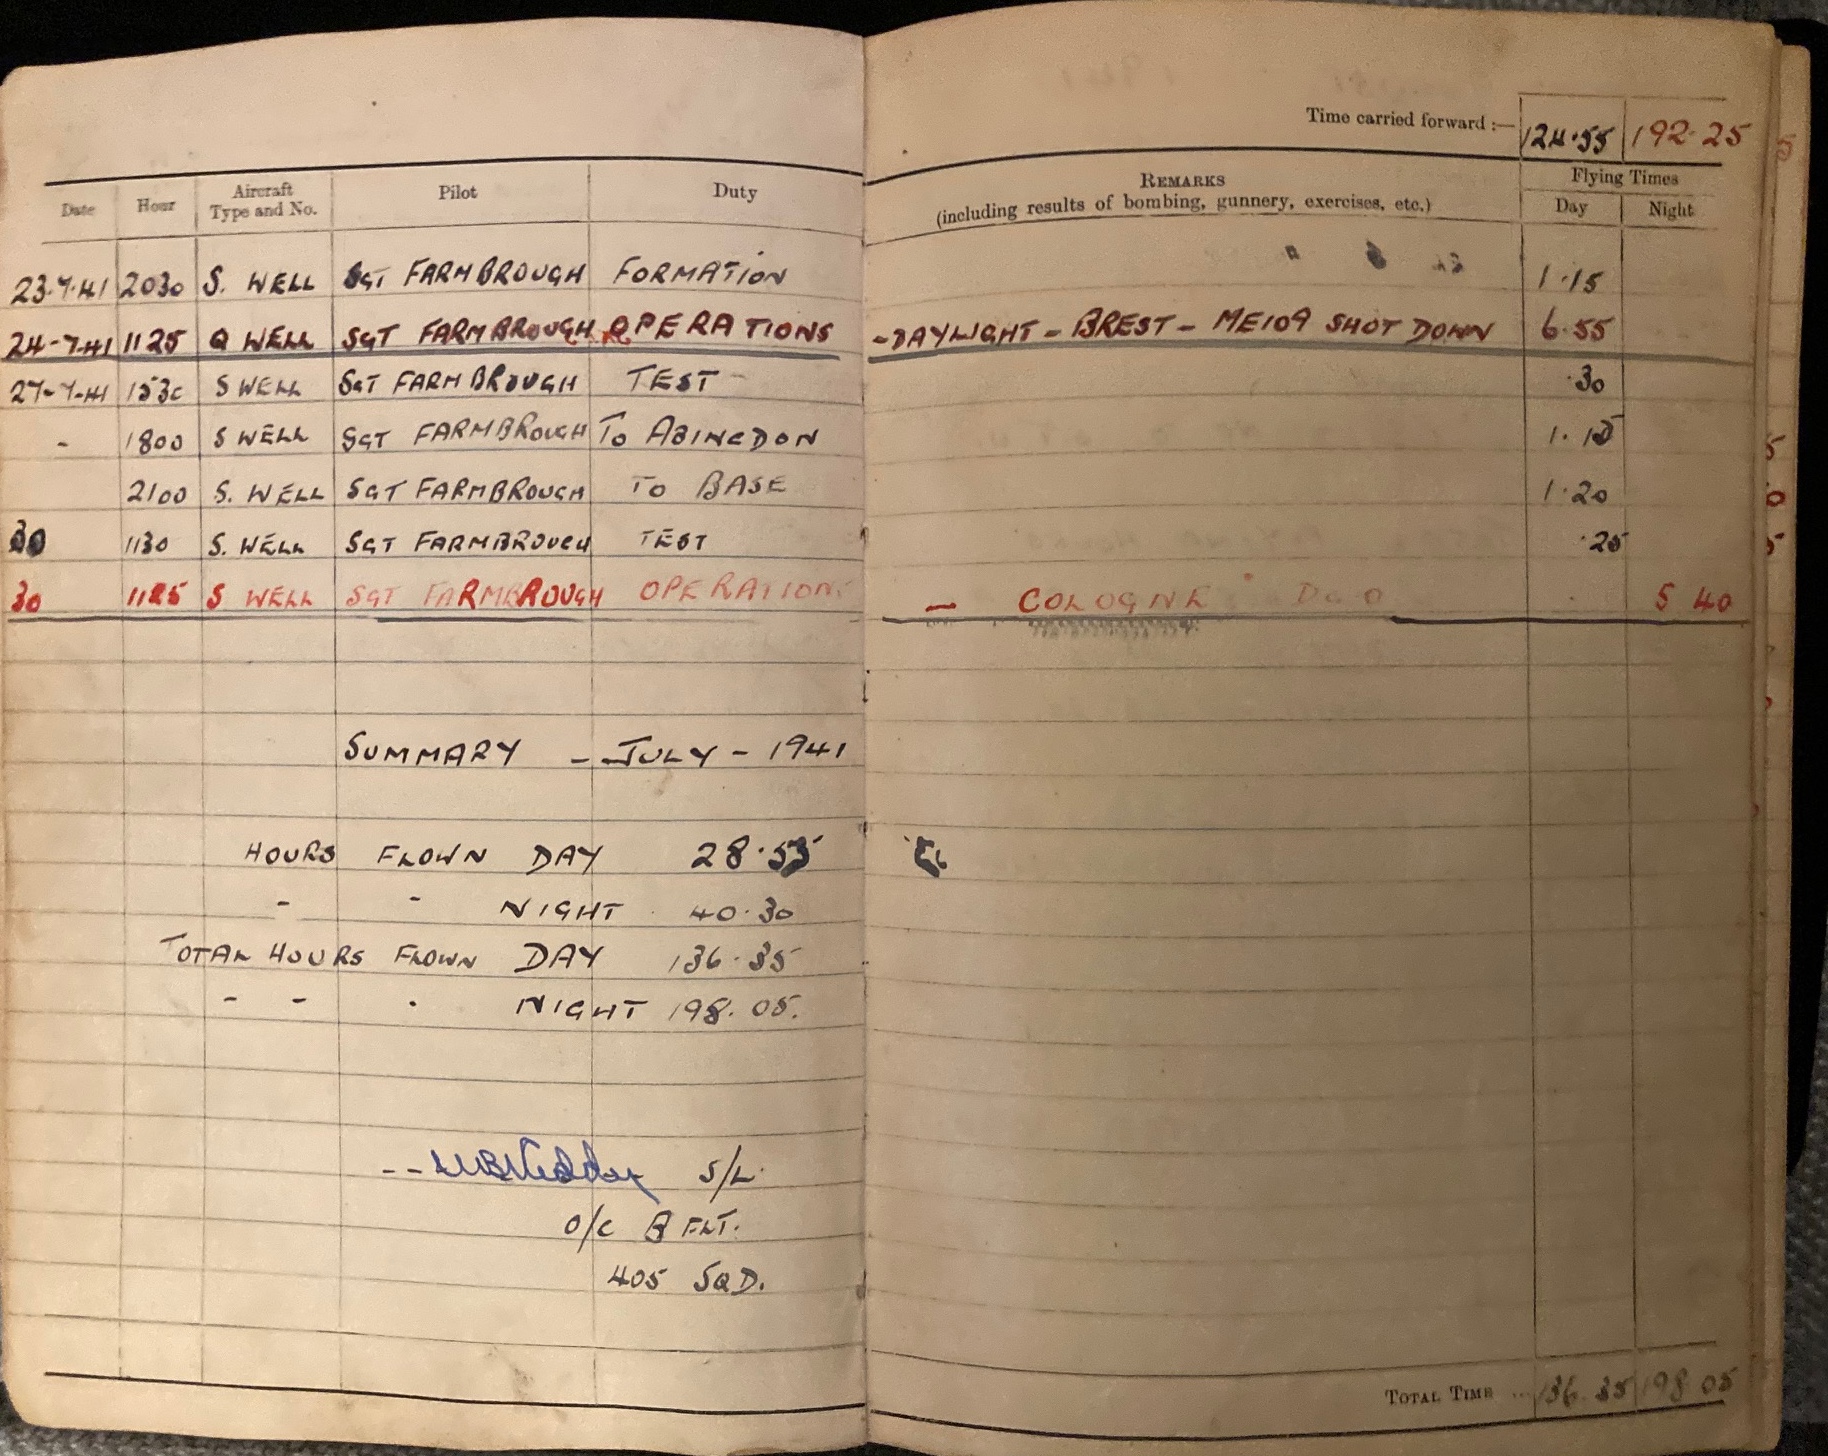 Time carried forward :— 124.55 192.25
Date Hour Aircraft Type and No. Pilot Duty REMARKS (including results of bombing, gunnery, exercises, etc.) Flying Times Day Night
23.7.41 2030 S. WELL SGT FARMBROUGH FORMATION 1.15
24-7-41 1125 Q WELL SGT FARMBROUGH OPERATIONS - DAYLIGHT - BREST - ME109 SHOT DOWN 6.55
27-7-41 1530 S WELL SGT FARMBROUGH TEST .30
- 1800 S WELL SGT FARMBROUGH TO ABINGDON 1.10
2100 S. WELL SGT FARMBROUGH TO BASE 1.20
30 1130 S. WELL SGT FARMBROUGH TEST .25
30 S WELL SGT FARMBROUGH OPERATIONS - COLOGNE 5 40
SUMMARY - JULY - 1941
HOURS FLOWN DAY 28.55
- - NIGHT 40.30
TOTAL HOURS FLOWN DAY 136.35
- - - NIGHT 198.05.
S/L.
O/C B FLT.
405 SQD.
TOTAL TIME ... 136.35 198 05